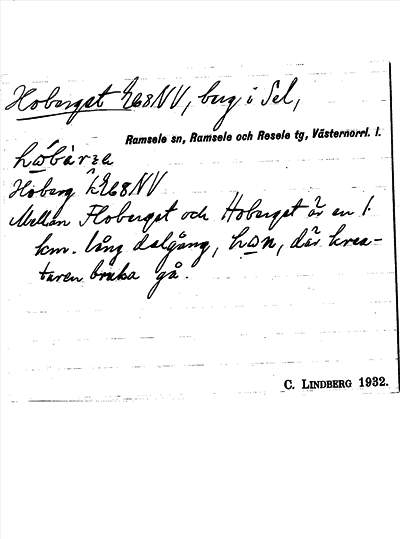 Hoberget h68NV, berg i Sel,
Ramsele sn, Ramsele och Resele tg, Västernorrl. l.
Hoberg h68NV
Mellan Floberget och Hoberget är en 1
km. lång dalgång, där krea-
turen bruka gå.
C. LINDBERG 1932.